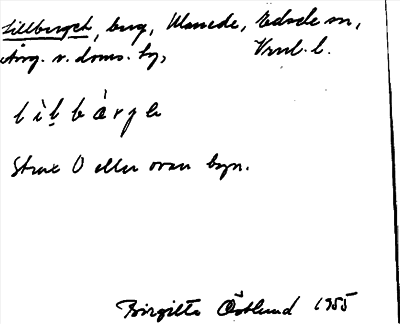 Lillberget, berg, Ulanede, Edsele sn,
Ång. v. doms. by,
l ì l b à r g e
Strax O eller ovan byn.
Birgitta Östlund 1955